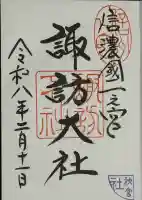 信濃國一之宮
諏訪大社
令和八年二月十一日